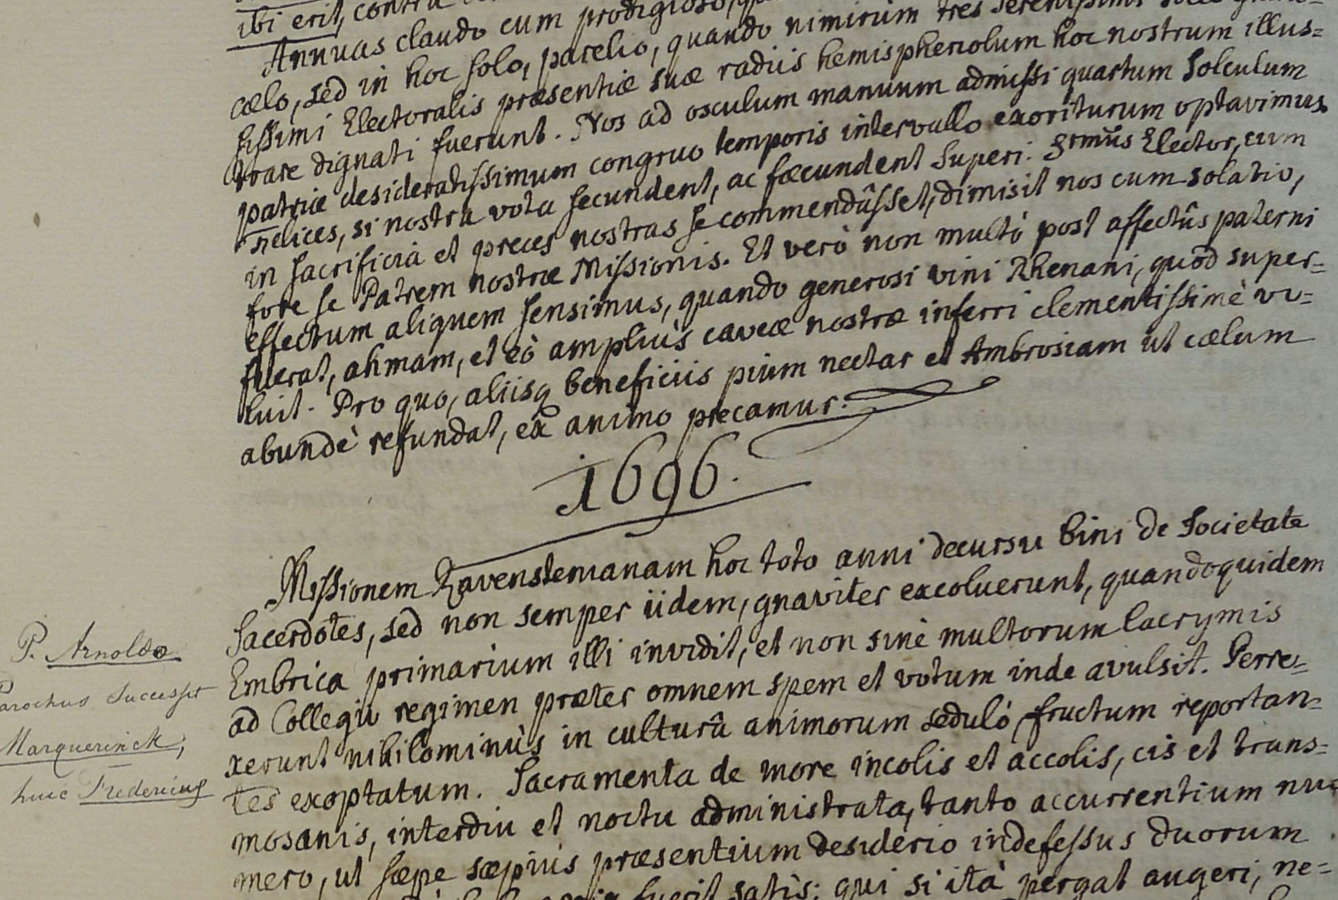 ibi erit, contra
Annuas claudo cum prodigioso,
cœlo, sed in hoc solo, parelio, quando nimirum tres serenissimi
sissimi Electoralis præsentiæ suæ radiis hemispheriolum hoc nostrum illus=
trare dignati fuerunt. Nos ad osculum manuum admissi quartum Solculum
patriæ desideratissimum congruo temporis intervallo exoriturum optavimus
felices, si nostra vota secundent, ac fœcundent Superi. Srmus Elector, cum
in sacrificia et preces nostras se commendâsset, dimisit nos cum solatio,
fore se Patrem nostræ Missionis. Et verò non multò post affectûs paterni
effectum aliquem sensimus, quando generosi vini Rhenani, quod super=
fuerat, ahmam, et eò ampliùs caveæ nostræ inferri clementissimè vo=
luit. Pro quo, aliisq beneficiis pium nectar et Ambrosiam ut cœlum
abundè refundat, ex animo precamur.
1696.
Missionem Ravensteinianam hoc toto anni decursu bini de Societate
Sacerdotes, sed non semper iidem, gnaviter excoluerunt, quandoquidem
Embrica primarium illi invidit, et non sine multorum lacrymis
ad Collegii regimen præter omnem spem et votum inde avulsit. Perre=
xerunt nihilominùs in culturâ animorum sedulò, fructum reportan=
tes exoptatum. Sacramenta de more incolis et accolis, cis et trans=
mosanis, interdiu et noctu administrata, tanto accurrentium nu=
mero, ut sæpe sæpiùs præsentium desiderio indefessus duorum
fuerit satìs; qui si ità pergat augeri, ne=
P. Arnoldo
Parochus successit
Marquerinck,
huic Fredericus